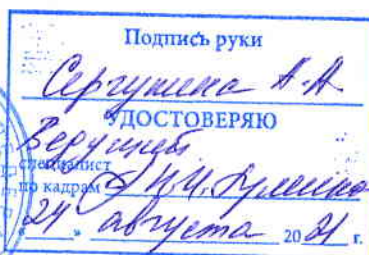 Подпись руки
Сергунина А.А
УДОСТОВЕРЯЮ
Ведущий
специалист
по кадрам Н.И.
24 августа 2021 г.